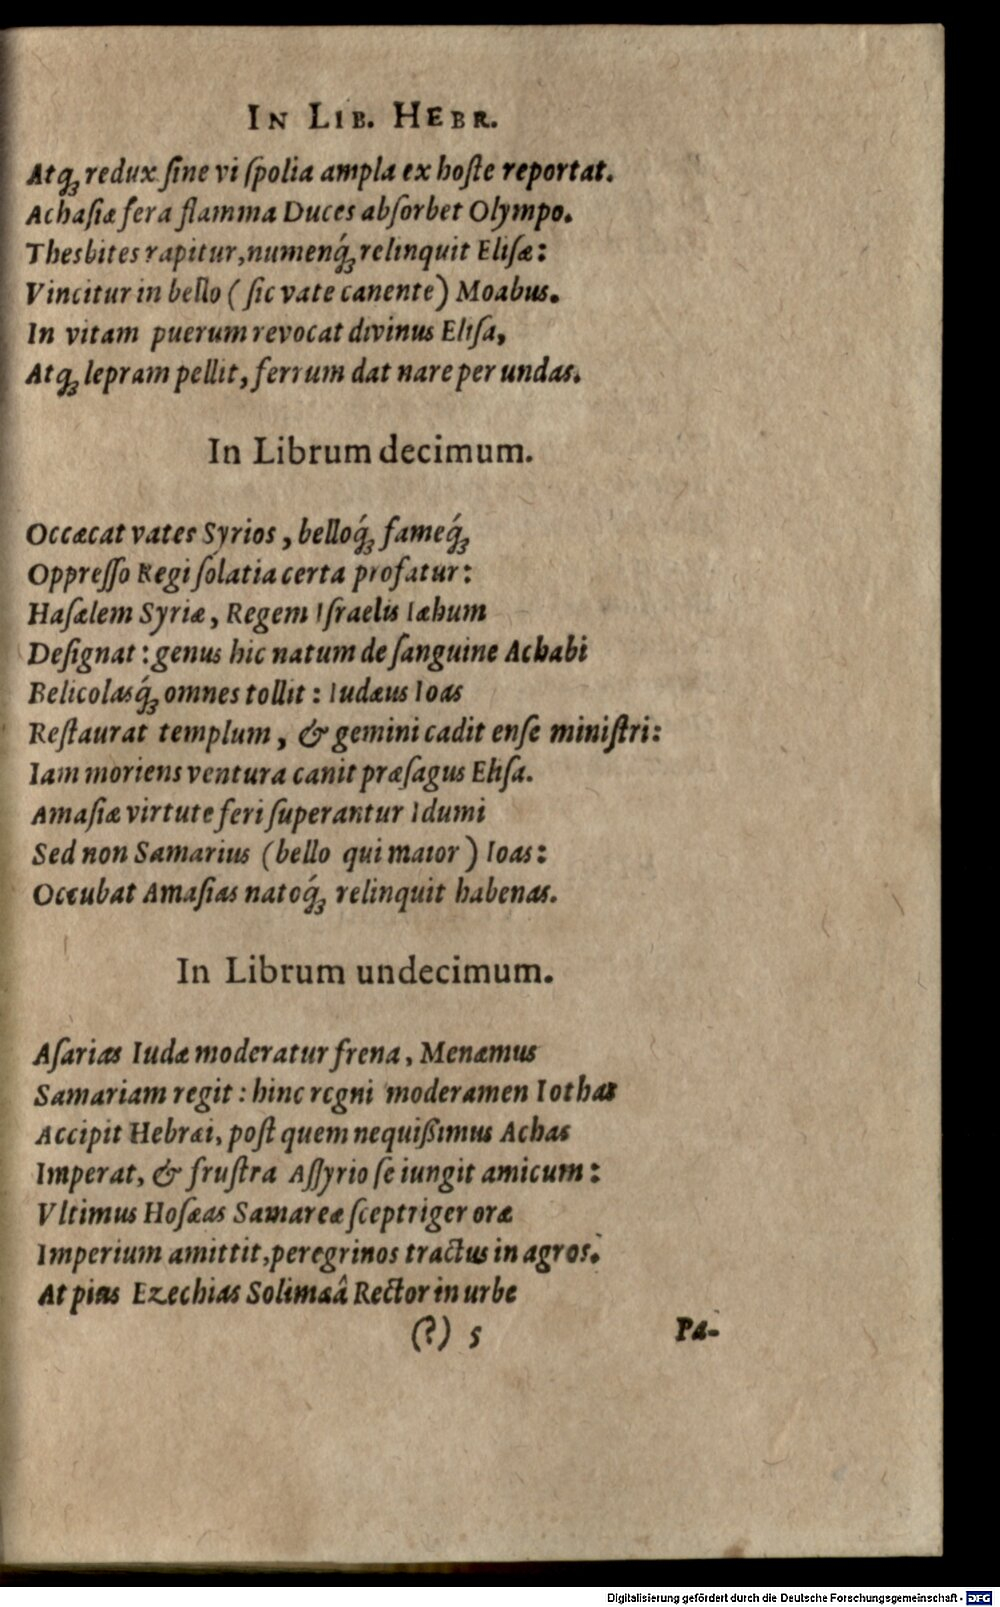 IN LIB. HEBR.
Atq́ꝫ redux ſine vi ſpolia ampla ex hoſte reportat.
Achaſiæ fera flamma Duces abſorbet Olympo.
Thesbites rapitur, numenq́ꝫ relinquit Eliſæ:
Vincitur in bello (ſic vate canente) Moabus.
In vitam puerum revocat divinus Eliſa,
Atqꝫ lepram pellit, ferrum dat nare per undas.
In Librum decimum.
Occæcat vates Syrios, belloq́ꝫ fameq́ꝫ
Oppreſſo Regi ſolatia certa profatur:
Haſælem Syriæ, Regem Iſraelis Iæhum
Deſignat: genus hic natum de ſanguine Achabi
Belicolasq́ꝫ omnes tollit: Iudæus Ioas
Reſtaurat templum, & gemini cadit enſe miniſtri:
Iam moriens ventura canit præſagus Eliſa.
Amaſiæ virtute feri ſuperantur Idumi
Sed non Samarius (bello qui maior) Ioas:
Occubat Amaſias natoq́ꝫ relinquit habenas.
In Librum undecimum.
Aſarias Iudæ moderatur frena, Menæmus
Samariam regit: hinc regni moderamen Iothas
Accipit Hebræi, poſt quem nequißimus Achas
Imperat, & fruſtra Aſſyrio ſe iungit amicum:
Vltimus Hoſæas Samareæ ſceptriger oræ
Imperium amittit, peregrinos tractus in agros.
At pius Ezechias Solimaâ Rector in urbe
(?) 5 Pa-
Digitalisierung gefördert durch die Deutsche Forschungsgemeinschaft - DFG